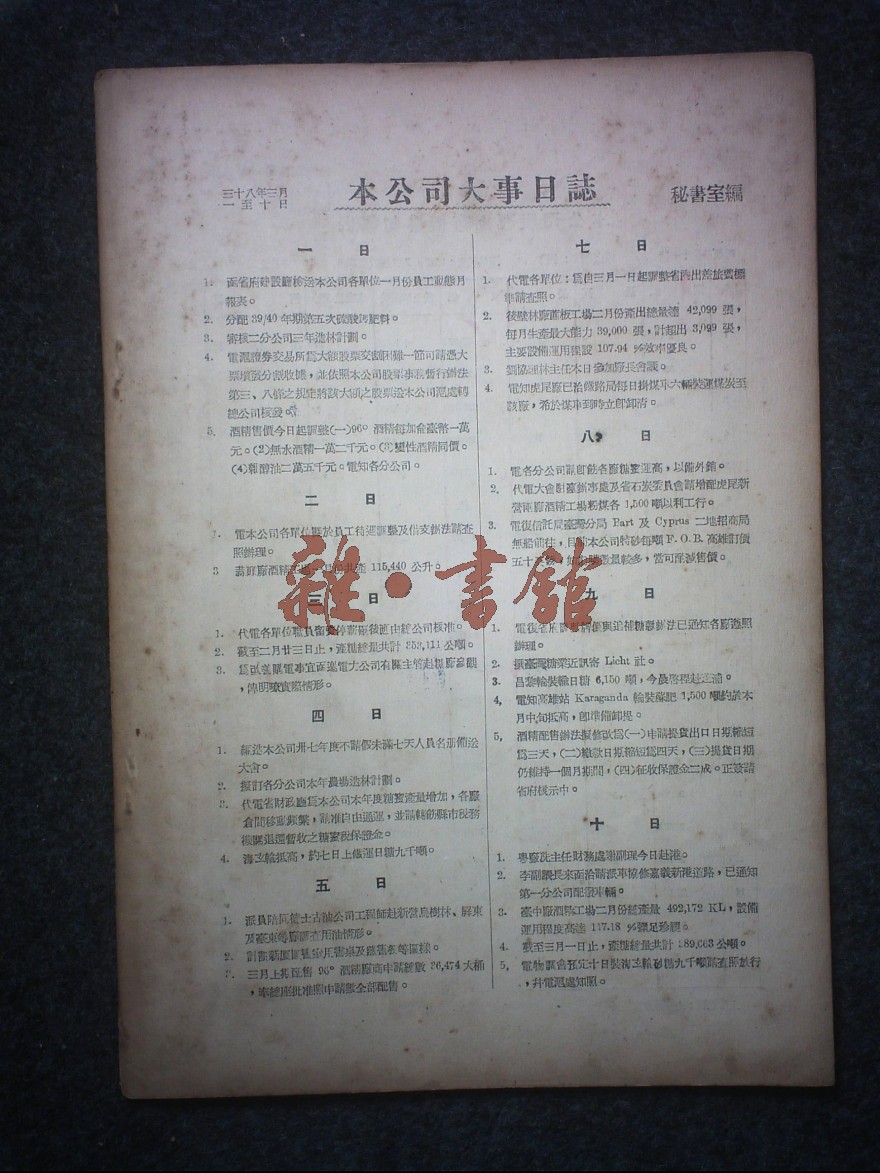 三十八年三月
一至十日
本公司大事日誌
秘書室編
一 日
1. 函省府建設廳檢送本公司各單位一月份員工動態月
報表。
2. 分配 39/40 年期第五次硫酸錏肥料。
3. 審核二分公司三年造林計劃。
4. 電滬證券交易所爲大額股票交割困難一節可請憑大
票填發分割收據,並依照本公司股票事務暫行辦法
第三、八條之規定將該大額之股票送本公司滬處轉
總公司核發。
5. 酒精售價今日起調整(一)96° 酒精每加侖臺幣一萬
元。(2)無水酒精一萬二千元。(3)變性酒精同價。
(4)雜醇油二萬五千元。電知各分公司。
二 日
電本公司各單位關於員工待遇調整及借支辦法請查
照辦理。
3 酒精 115,440 公升。
三 日
1. 代電各單位職員 停薪 核准。
2. 截至二月廿三日止,產糖總量共計 353,111 公噸。
3.
,俾明瞭實際情形。
四 日
1. 本公司卅七年度不請假未滿七天人員名册備送
大會。
2. 擬訂各分公司本年農場造林計劃。
3. 代電省財政廳爲本公司本年度糖蜜產量增加,各廠
倉間移動頻繁,請准自由通運,並請轉飭縣市稅務
機關退還暫收之糖蜜稅保證金。
4. 海 輪抵高,約七日上儎運日糖九千噸。
五 日
1. 派員陪同德士古油公司工程師赴新營烏樹林、屏東
及臺東等廠調查用油情形。
2.
3. 三月上期配售 96° 酒精廠商申請總數 36,474 大桶
,奉總座批准照申請數全部配售。
七 日
1. 代電各單位:爲自三月一日起調整省內出差旅費標
準請查照。
2. 後壁林廠蔗板工場二月份產出總量達 42,099 張,
每月生產最大能力 39,000 張,計超出 3,099 張,
主要設備運用程設 107.94 %效率優良。
3. 劉協理林主任本日參加廠長會議。
4. 電知虎尾廠已洽鐵路局每日掛煤車六輛裝運煤炭至
該廠,希於煤車到時立卽卸清。
八 日
1. 電各分公司 卽飭各廠糖蜜運高,以備外銷。
2. 代電大會駐臺辦事處及省石炭委員會請增配虎尾新
營兩廠酒精工場粉煤各 1,500 噸以利工行。
3. 電復信託局臺灣分局 Part 及 Cyprus 二地招商局
無船前往,目前本公司特砂每噸 F.O.B. 高雄訂價
五十 量較多,當可酌減售價。
九 日
1. 電復省府 補糖 辦法已通知各廠遵照
辦理。
2. 撰臺灣糖業近訊寄 Licht 社。
3. 昌黎輪裝糖日糖 6,150 噸,今晨啓程赴 浦。
4, 電知高雄站 Karaganda 輪裝 肥 1,500 噸約於本
月中旬抵高,卽準備卸提。
5, 酒精配售辦法擬修改爲(一)申請提貨出口日期縮短
爲三天,(二)繳款日期縮短爲四天,(三)提貨日期
仍維持一個月期間,(四)征收保證金二成。正簽請
省府核示中。
十 日
1. 冼主任財務處謝副理今日赴港。
2. 李副 長來函洽請派車協修嘉義新港道路,已通知
第一分公司配發車輛。
3. 臺中廠酒精工場二月份總產量 492,172 KL,設備
運用程度高達 117.18 % 足珍 。
4. 截至三月一日止,產糖總量共計 389,663 公噸。
5, 十日裝海 輪砂糖九千噸請查照放行
,并電滬處知照。
雜·書館